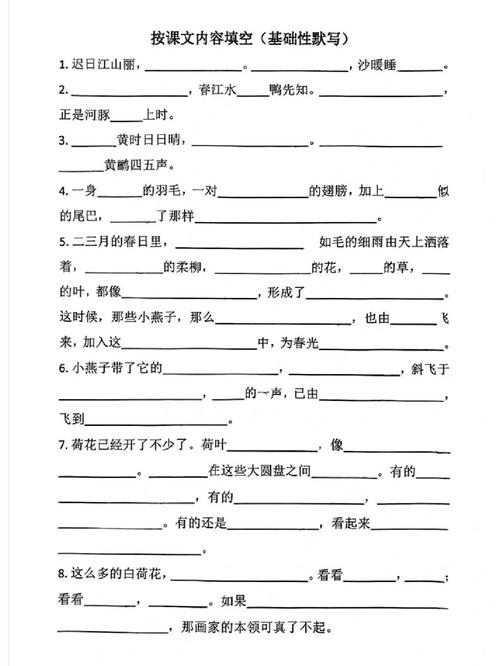 按课文内容填空（基础性默写）
1. 迟日江山丽，____________。____________，沙暖睡______。
2. ____________，春江水____鸭先知。____________，
正是河豚____上时。
3. ______黄时日日晴，____________。____________
______黄鹂四五声。
4. 一身______的羽毛，一对____________的翅膀，加上______似
的尾巴，____了那样____________________。
5. 二三月的春日里，________________ 如毛的细雨由天上洒落
着，________的柔柳，________的花，____的草，____
的叶，都像____________，形成了____________。
这时候，那些小燕子，那么____________，也由____飞
来，加入这____________中，为春光____________。
6. 小燕子带了它的____________，____________，斜飞于
____________，____的一声，已由____________，
飞到____________。
7. 荷花已经开了不少了。荷叶____________，像
____________。______在这些大圆盘之间____________。有的
____________，有的____________
____________。有的还是________，看起来________
____________。
8. 这么多的白荷花，____________。看看______，______；
看看______，______。如果____________
____________，那画家的本领可真了不起。